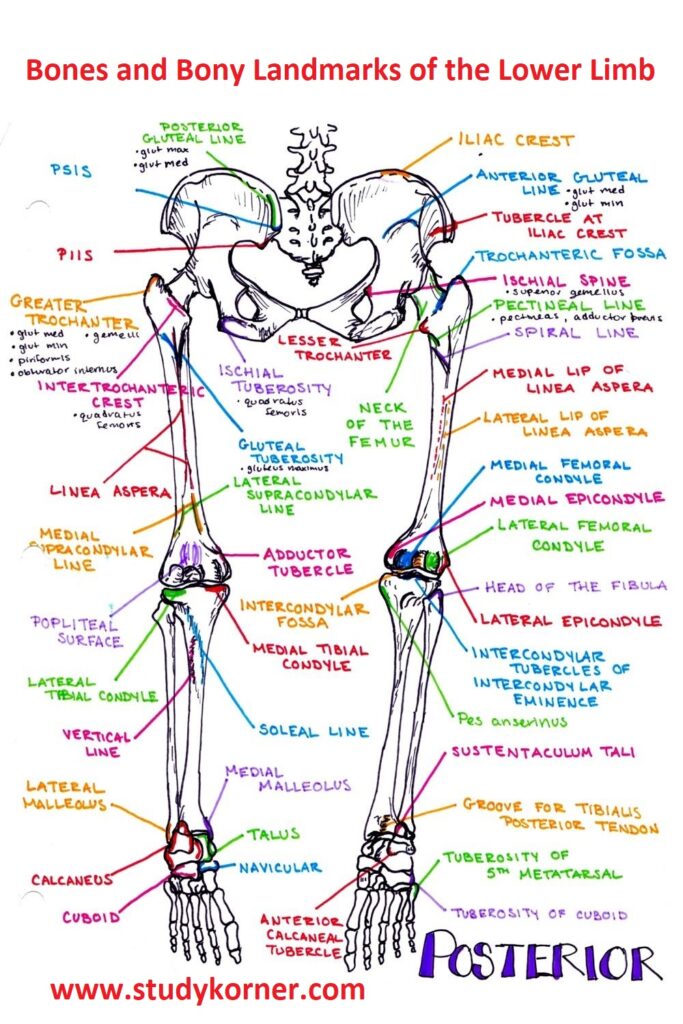 Bones and Bony Landmarks of the Lower Limb
POSTERIOR
GLUTEAL LINE
• glut max
• glut med
PSIS
PIIS
GREATER
TROCHANTER
• glut med
• gemelli
• glut min
• piriformis
• obturator internus
INTERTROCHANTERIC
CREST
• quadratus
femoris
LINEA ASPERA
MEDIAL
SUPRACONDYLAR
LINE
POPLITEAL
SURFACE
LATERAL
TIBIAL CONDYLE
VERTICAL
LINE
LATERAL
MALLEOLUS
CALCANEUS
CUBOID
ISCHIAL
TUBEROSITY
• quadratus
femoris
GLUTEAL
TUBEROSITY
• gluteus maximus
LATERAL
SUPRACONDYLAR
LINE
ADDUCTOR
TUBERCLE
INTERCONDYLAR
FOSSA
MEDIAL TIBIAL
CONDYLE
SOLEAL LINE
MEDIAL
MALLEOLUS
TALUS
NAVICULAR
ANTERIOR
CALCANEAL
TUBERCLE
LESSER
TROCHANTER
NECK
OF THE
FEMUR
ILIAC CREST
ANTERIOR GLUTEAL
LINE • glut med
• glut min
TUBERCLE AT
ILIAC CREST
TROCHANTERIC FOSSA
ISCHIAL SPINE
• superior gemellus
PECTINEAL LINE
• pectineas, adductor brevis
SPIRAL LINE
MEDIAL LIP OF
LINEA ASPERA
LATERAL LIP OF
LINEA ASPERA
MEDIAL FEMORAL
CONDYLE
MEDIAL EPICONDYLE
LATERAL FEMORAL
CONDYLE
HEAD OF THE FIBULA
LATERAL EPICONDYLE
INTERCONDYLAR
TUBERCLES OF
INTERCONDYLAR
EMINENCE
Pes anserinus
SUSTENTACULUM TALI
GROOVE FOR TIBIALIS
POSTERIOR TENDON
TUBEROSITY OF
5TH METATARSAL
TUBEROSITY OF CUBOID
POSTERIOR
www.studykorner.com